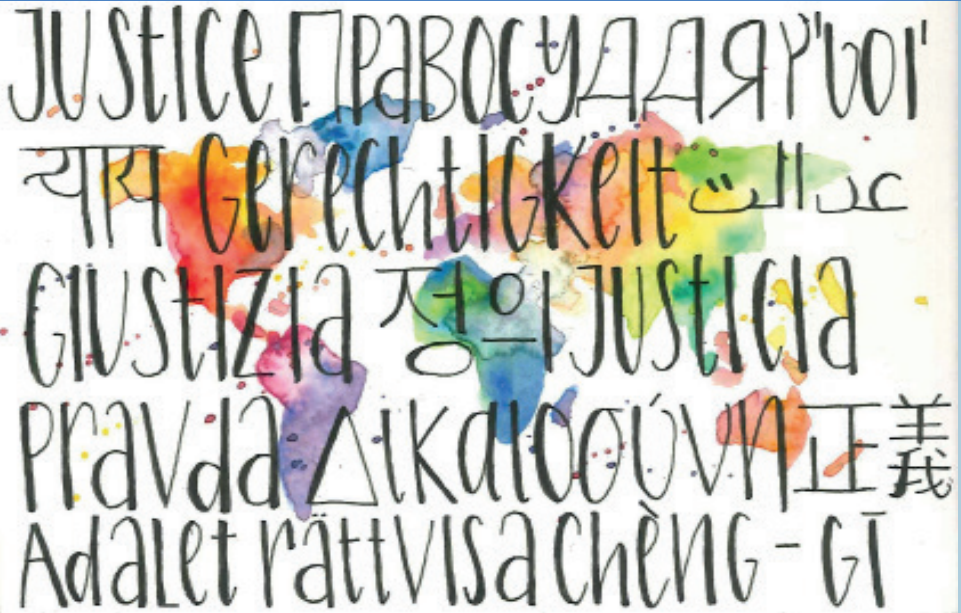 Justice ПравосуДДЯ
Gerechtigkeit عدالت
Giustizia 정의 Justicia
Pravda Δικαιοσύνη 正義
Adalet rättvisa chèng-gī